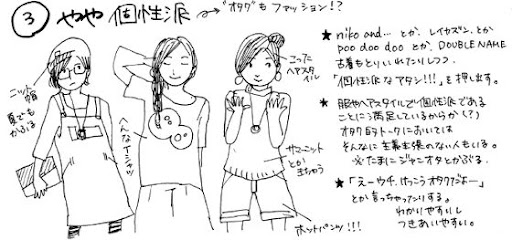 ③ やや個性派 → "オタク"もファッション!?
ニット帽
夏でも
かぶる
へんなTシャツ
こった
ヘアスタ
イル
サマーニット
とか
きちゃう
ホットパンツ!!!
★ niko and... とか、レイカズン、とか
poo doo doo とか、DOUBLE NAME
古着もとりいれてたりしつつ、
「個性派なアタシ!!!」を押し出す。
★ 服やヘアスタイルで個性派である
ことに満足しているからか(?)
オタク的トークにおいては
そんなに主義主張のない人もいる。
※たまにジャニオタとかぶる。
★ 「えーウチ、けっこうオタクだよー」
とか言っちゃってたりする。
わかりやすいし
つきあいやすい。